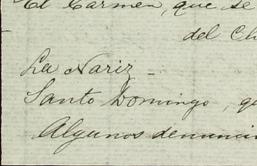 El Carmen, que se
del Ch
La Nariz
Santo Domingo, qu
Algunos denunci